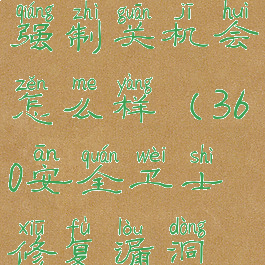 qiáng zhì guān jī huì
强制关机会
zěn me yàng
怎么样(36
ān quán wèi shì
0安全卫士
xiū fù lòu dòng
修复漏洞